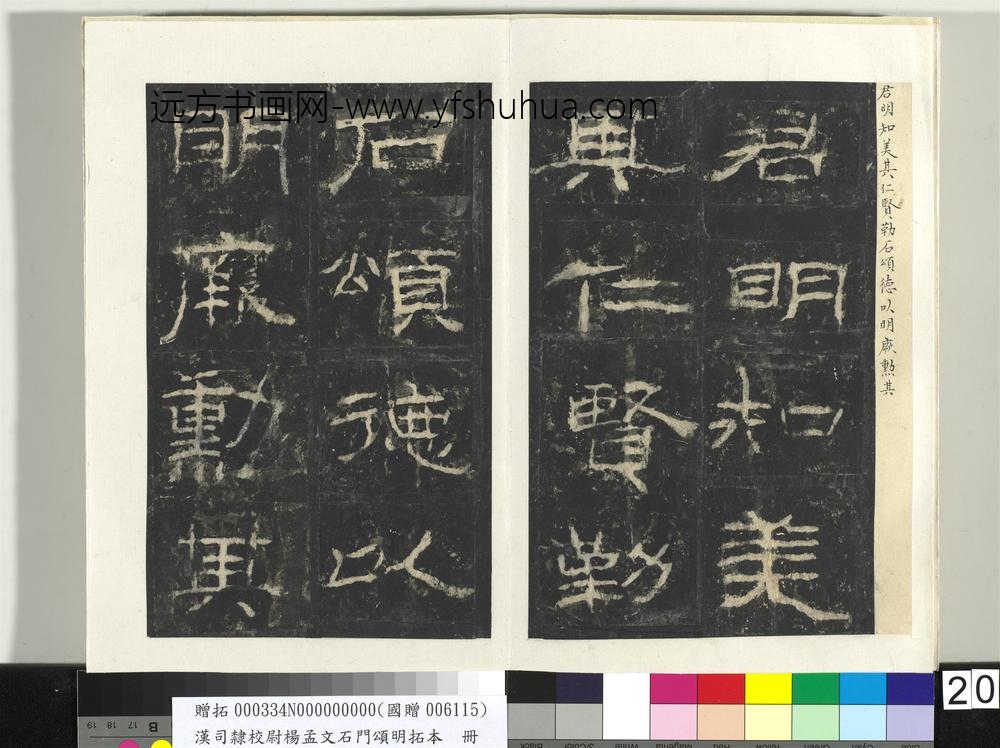 远方书画网-www.yfshuhua.com
君明知美其仁賢勒石頌德以明厥勲其
君明知美
其仁賢勒
石頌德以
明厥勲其
贈拓 000334N000000000(國贈 006115)
漢司隸校尉楊孟文石門頌明拓本 冊
20
19 18 17 16 B
Black 3/Color White Magenta Red Yellow Green Cyan Blue